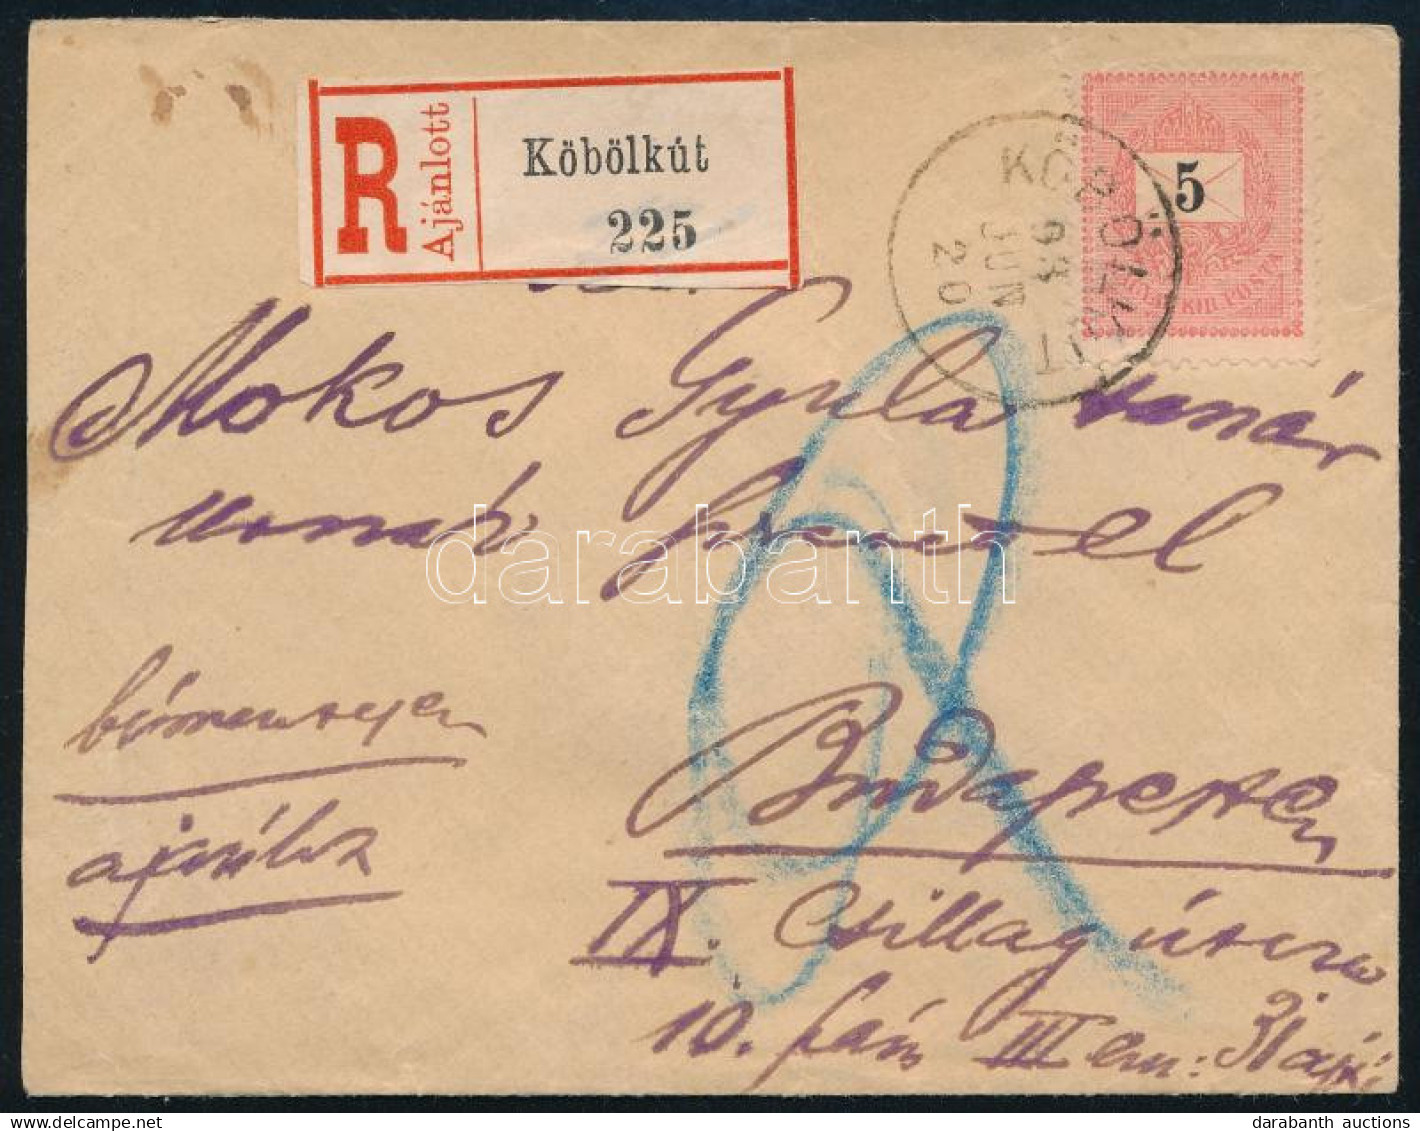 R
Ajánlott
Köbölkút
225
KÖBÖLKÚT
98
JUN
20
5
MAGYAR KIR. POSTA
Mokos Gyula tanár
urnak
bérmentesen
ajánlva
Budapesten
IX. Csillag utcza
10. szám III em: 31 ajtó
darabanth
darabanth auctions